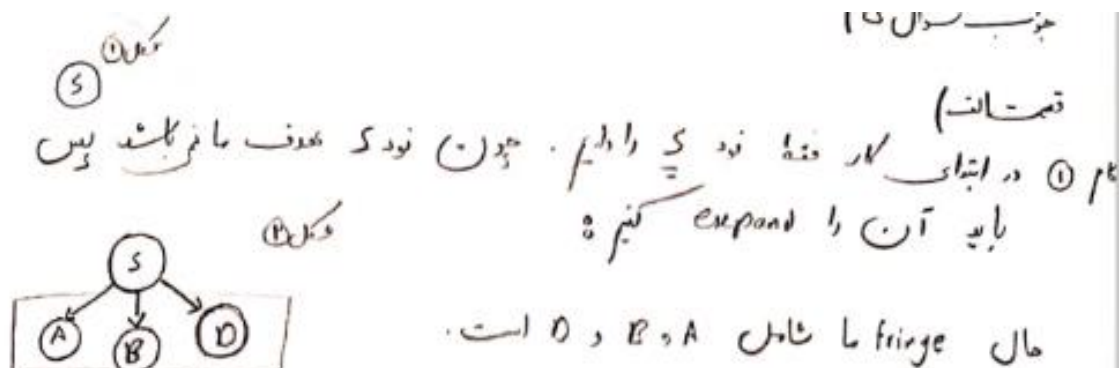 جواب سوال
قسمت الف)
گام ① در ابتدای کار فقط نود S را داریم. چون نود S هدف ما نمی‌باشد پس
باید آن را expand کنیم:
حال fringe ما شامل A و B و D است.
شکل ①
S
شکل ②
S
A B D